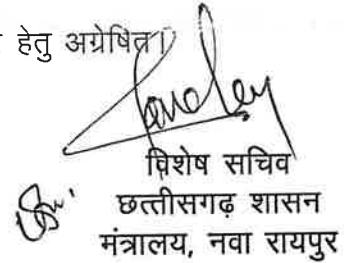 हेतु अग्रेषित।
विशेष सचिव
छत्तीसगढ़ शासन
मंत्रालय, नवा रायपुर